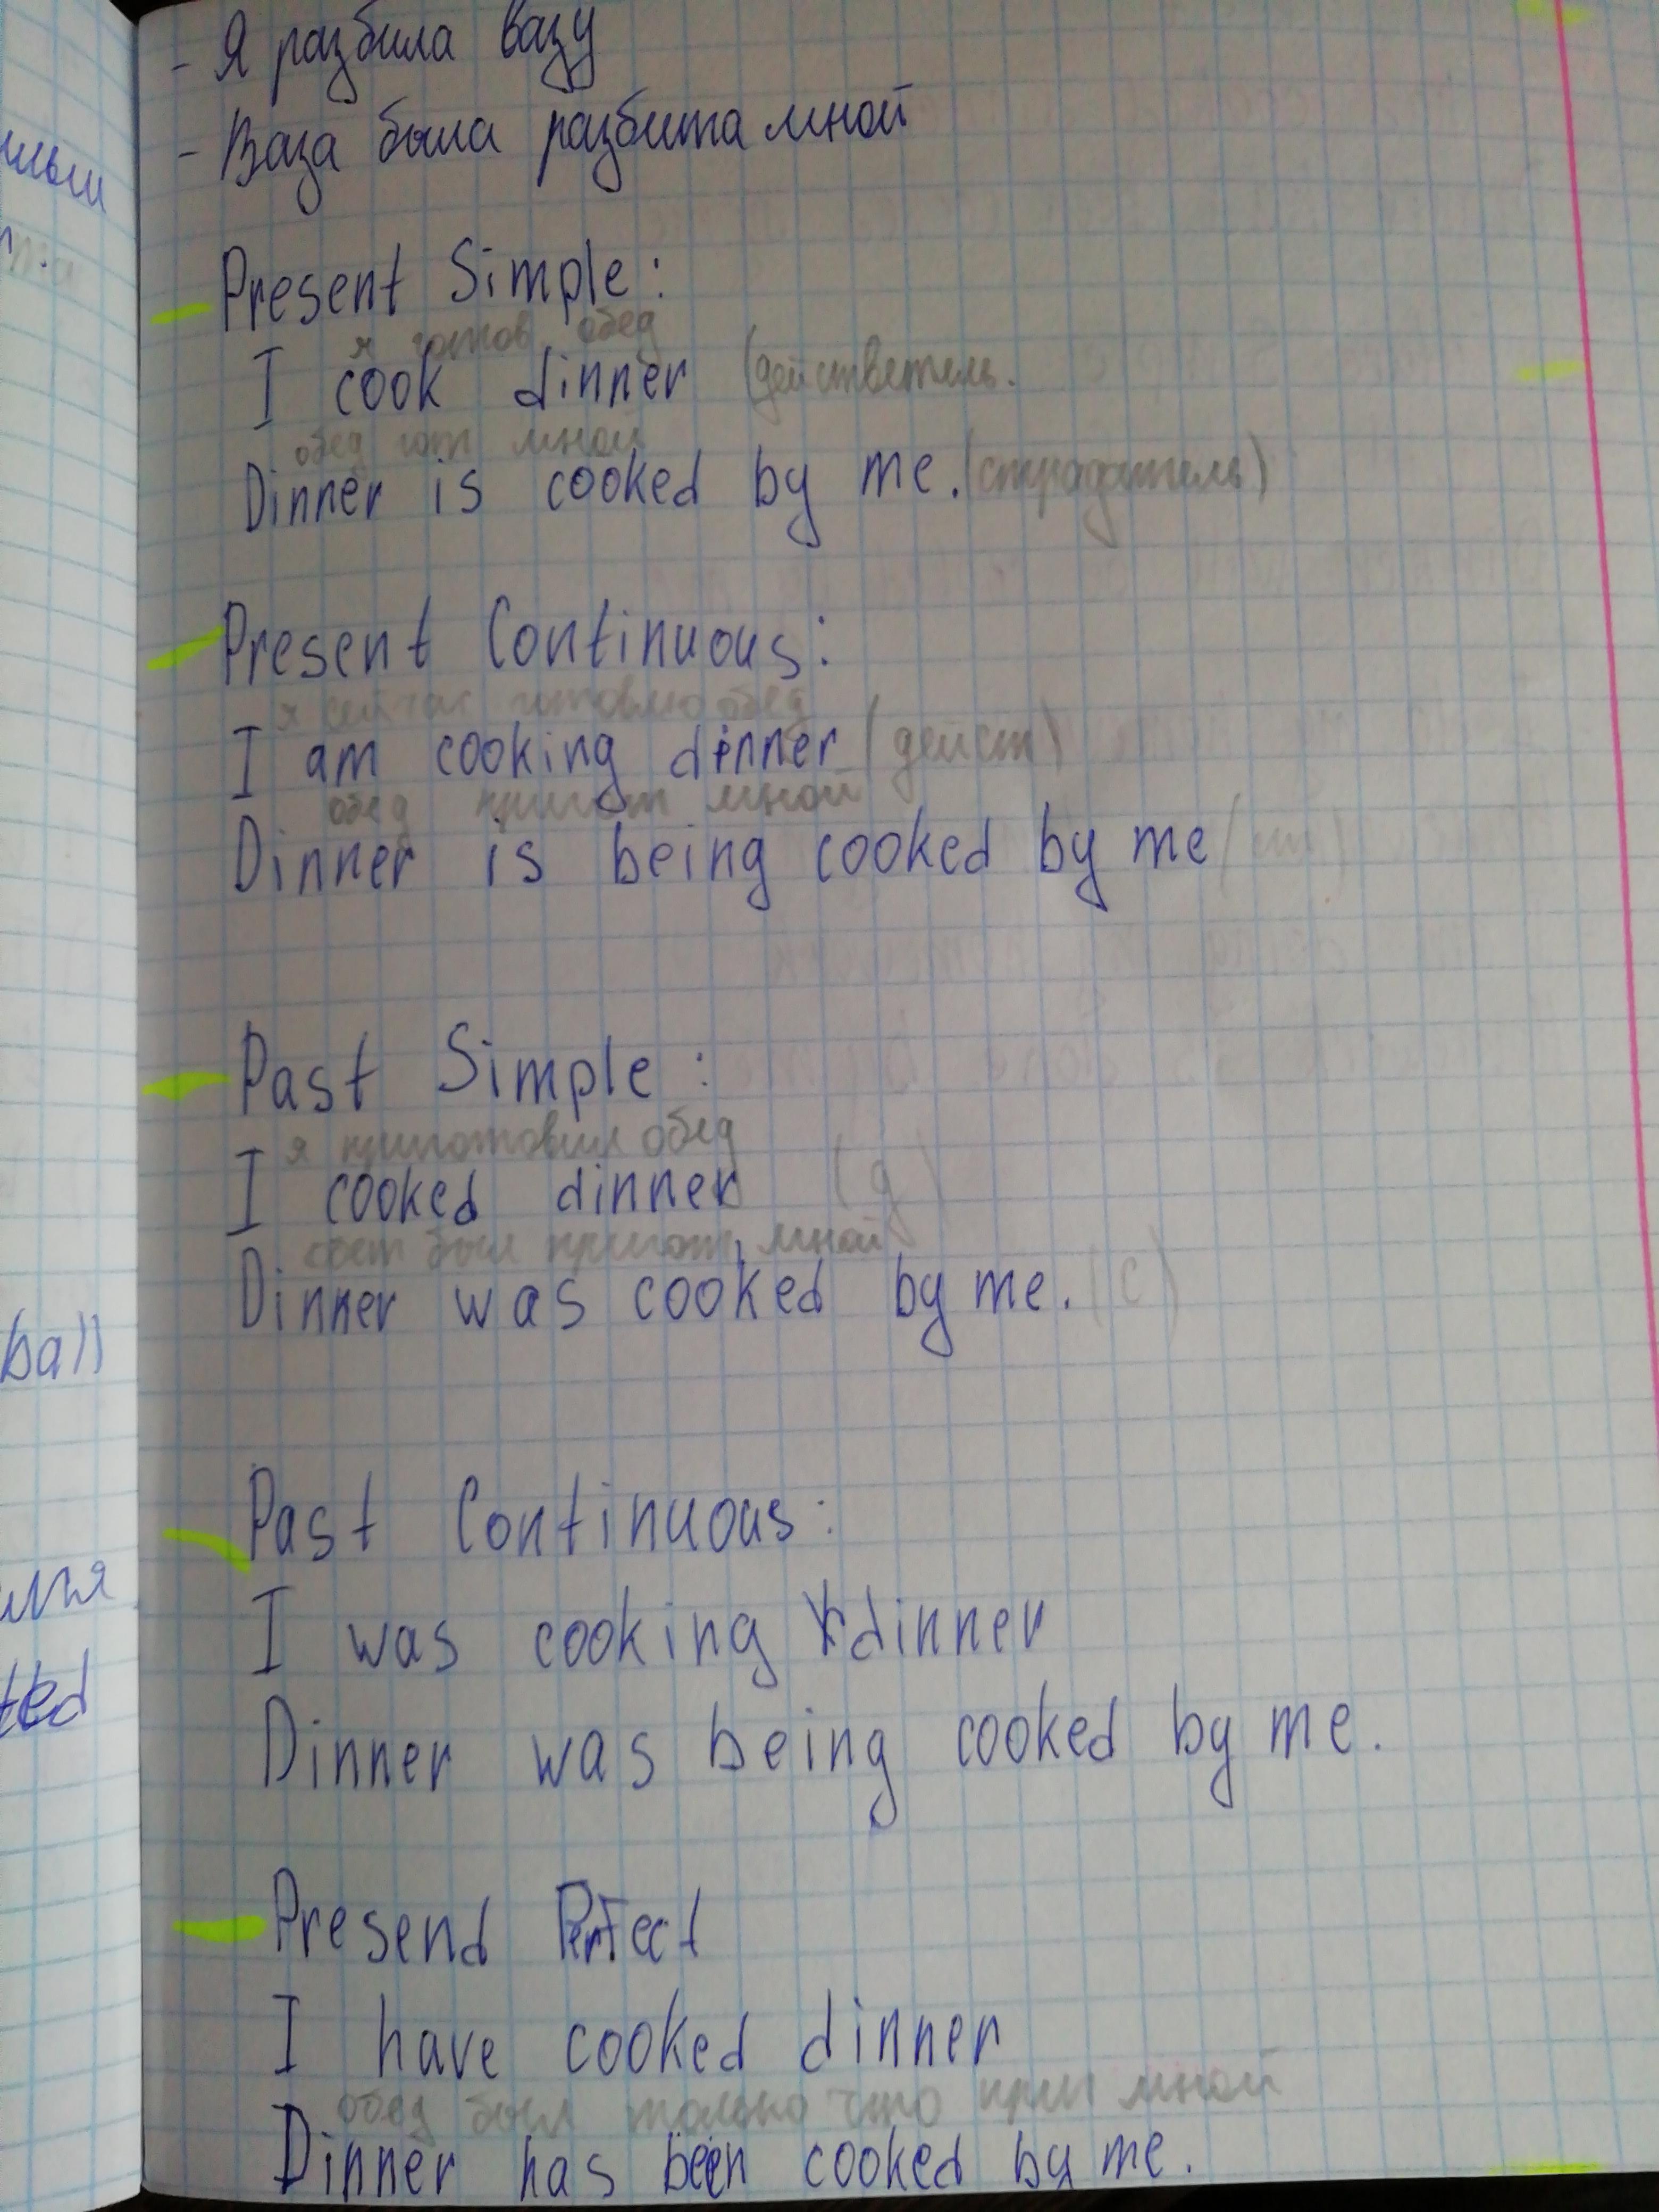 - Я разбила вазу
- Ваза была разбита мной
Present Simple:
я готов обед
I cook dinner (действетель.
обед гот мной
Dinner is cooked by me. (страдатель)
Present Continuous:
я сейчас готовлю обед
I am cooking dinner (дейст)
обед пригот мной
Dinner is being cooked by me
Past Simple:
я приготовил обед
I cooked dinner (д)
был пригот мной
Dinner was cooked by me. (с)
ball
Past Continuous:
I was cooking dinner
ted
Dinner was being cooked by me.
Presend Perfect
I have cooked dinner
обед был только что приг мной
Dinner has been cooked by me.